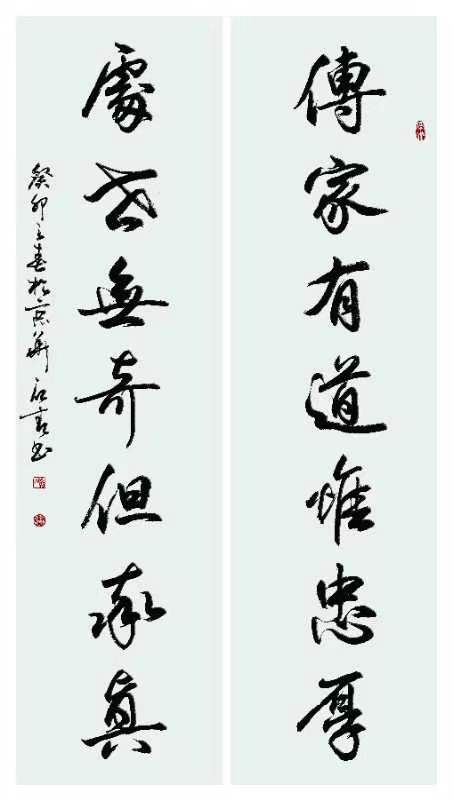 傳家有道惟忠厚
處世無奇但率真
癸卯之春於京華 書